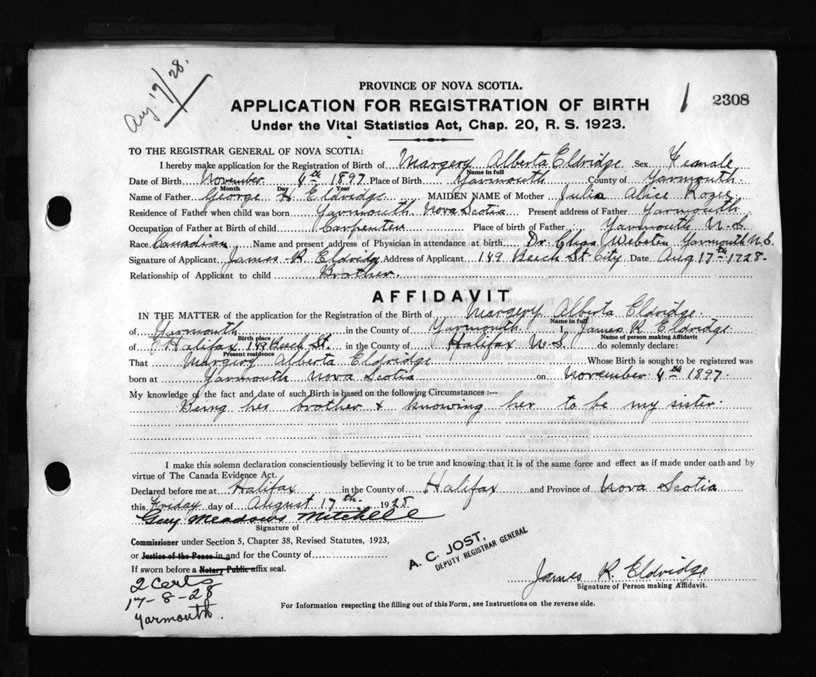 Aug 17/28.
PROVINCE OF NOVA SCOTIA.
1 2308
APPLICATION FOR REGISTRATION OF BIRTH
Under the Vital Statistics Act, Chap. 20, R. S. 1923.
TO THE REGISTRAR GENERAL OF NOVA SCOTIA:
I hereby make application for the Registration of Birth of Margery Alberta Eldridge Sex Female
Name in full
Date of Birth November 4th 1897 Place of Birth Yarmouth County of Yarmouth
Month Day Year
Name of Father George H Eldridge MAIDEN NAME of Mother Julia Alice
Residence of Father when child was born Yarmouth Nova Scotia Present address of Father Yarmouth
Occupation of Father at Birth of child Carpenter Place of birth of Father Yarmouth N.S.
Race Canadian Name and present address of Physician in attendance at birth Dr. Chas Webster Yarmouth N.S.
Signature of Applicant James R Eldridge Address of Applicant 149 Beech St. City Date Aug 17th 1928.
Relationship of Applicant to child Brother.
AFFIDAVIT
IN THE MATTER of the application for the Registration of the Birth of Margery Alberta Eldridge
Name in full
of Yarmouth in the County of Yarmouth I, James R Eldridge
Birth place Name of person making Affidavit
of Halifax 149 Beech St. in the County of Halifax N.S. do solemnly declare:
Present residence
That Margery Alberta Eldridge Whose Birth is sought to be registered was
born at Yarmouth Nova Scotia on November 4th 1897.
My knowledge of the fact and date of such Birth is based on the following Circumstances :—
Being her brother & knowing her to be my sister.
I make this solemn declaration conscientiously believing it to be true and knowing that it is of the same force and effect as if made under oath and by
virtue of The Canada Evidence Act.
Declared before me at Halifax in the County of Halifax and Province of Nova Scotia
this Friday day of August 17th 1928
Guy Meadows Mitchell
Signature of
Commissioner under Section 5, Chapter 38, Revised Statutes, 1923,
or Justice of the Peace in and for the County of
If sworn before a Notary Public affix seal.
A. C. JOST,
DEPUTY REGISTRAR GENERAL
James R. Eldridge
Signature of Person making Affidavit.
2 Certs
17-8-28
Yarmouth.
For Information respecting the filling out of this Form, see Instructions on the reverse side.